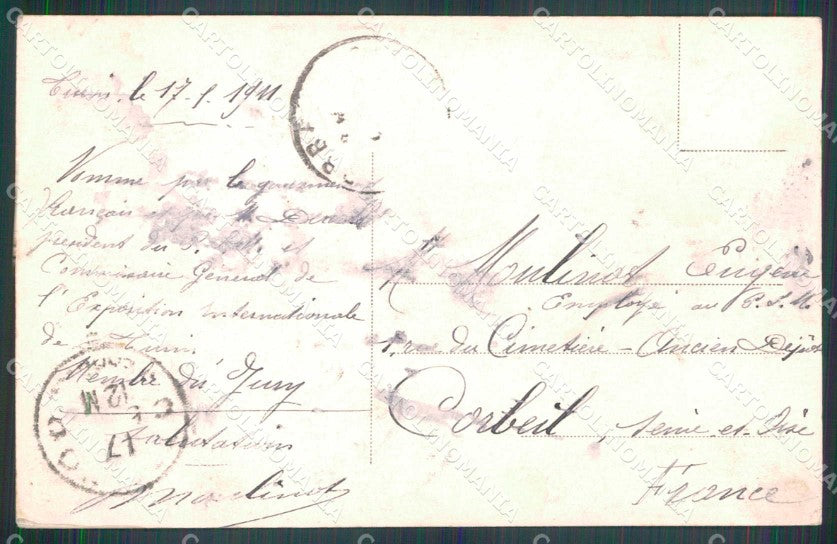 Turin, le 17-5-1911
Nommé par le gouvernement
français et par M. Derville
president du P.L.M. et
Commissaire Général de
l'Exposition internationale
de Turin
Membre du Jury
Salutations
Moulinot
Mr Moulinot Eugène
Employé au P.L.M.
1, rue du Cimetière - Ancien Dépôt
Corbeil, Seine-et-Oise
France
CARTOLINOMANIA